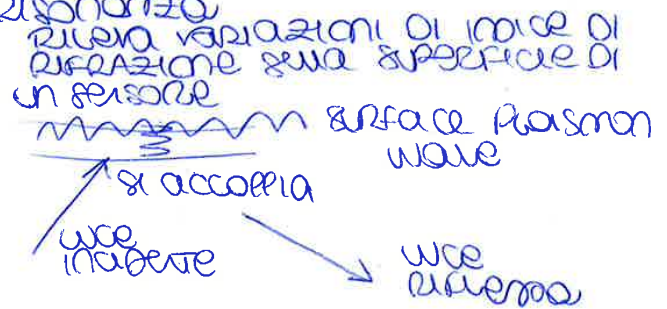 RISONANZA
RILEVA VARIAZIONI DI INDICE DI
RIFRAZIONE SULLA SUPERFICIE DI
UN SENSORE
SURFACE PLASMON
WAVE
SI ACCOPPIA
LUCE
INCIDENTE
LUCE
RIFLESSA